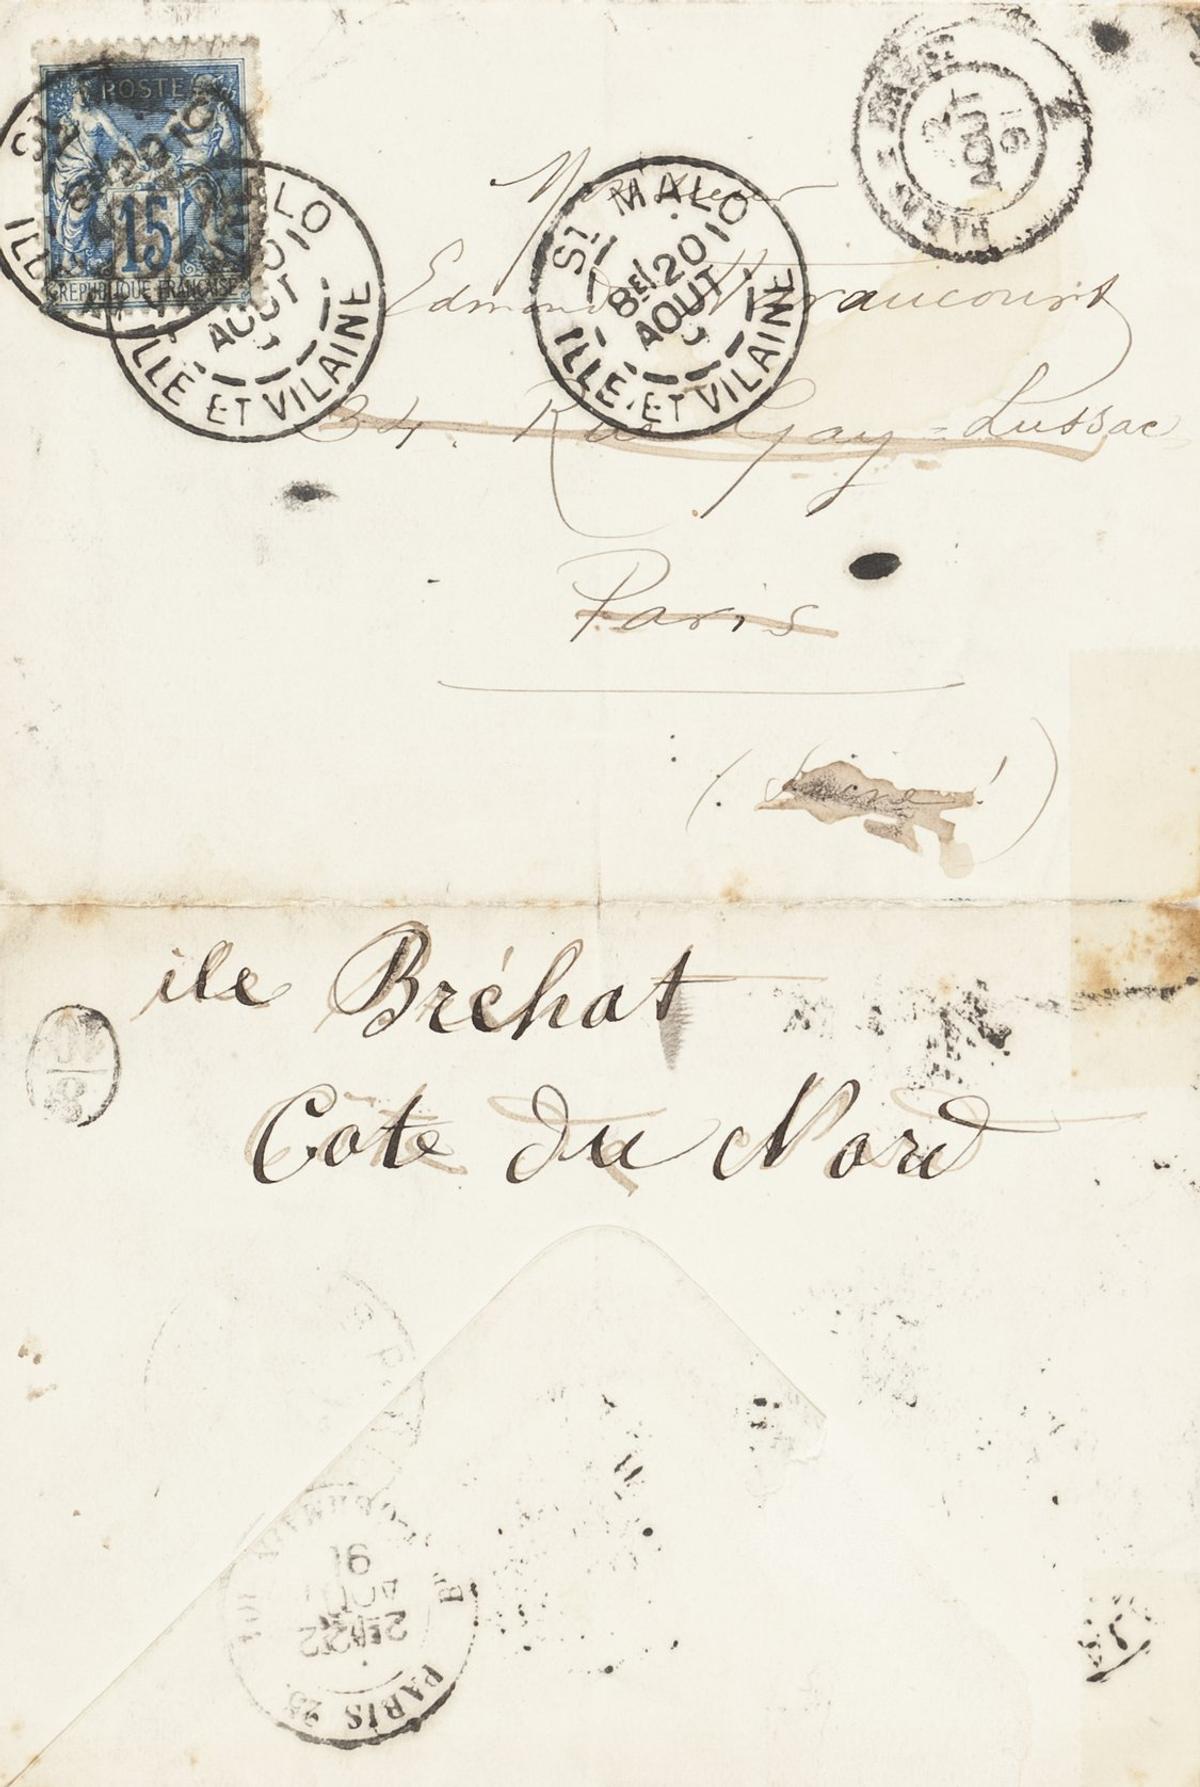 POSTE
15
REPUBLIQUE FRANÇAISE
ST MALO
8E/20 10
AOUT
ILLE ET VILAINE
ST MALO
8E/20 10
AOUT
ILLE ET VILAINE
PARIS
AOUT
91
Monsieur
Edmond Haraucourt
34. Rue Gay-Lussac
Paris
île Bréhat
Côte du Nord
PARIS 25
2E/22
AOUT
91